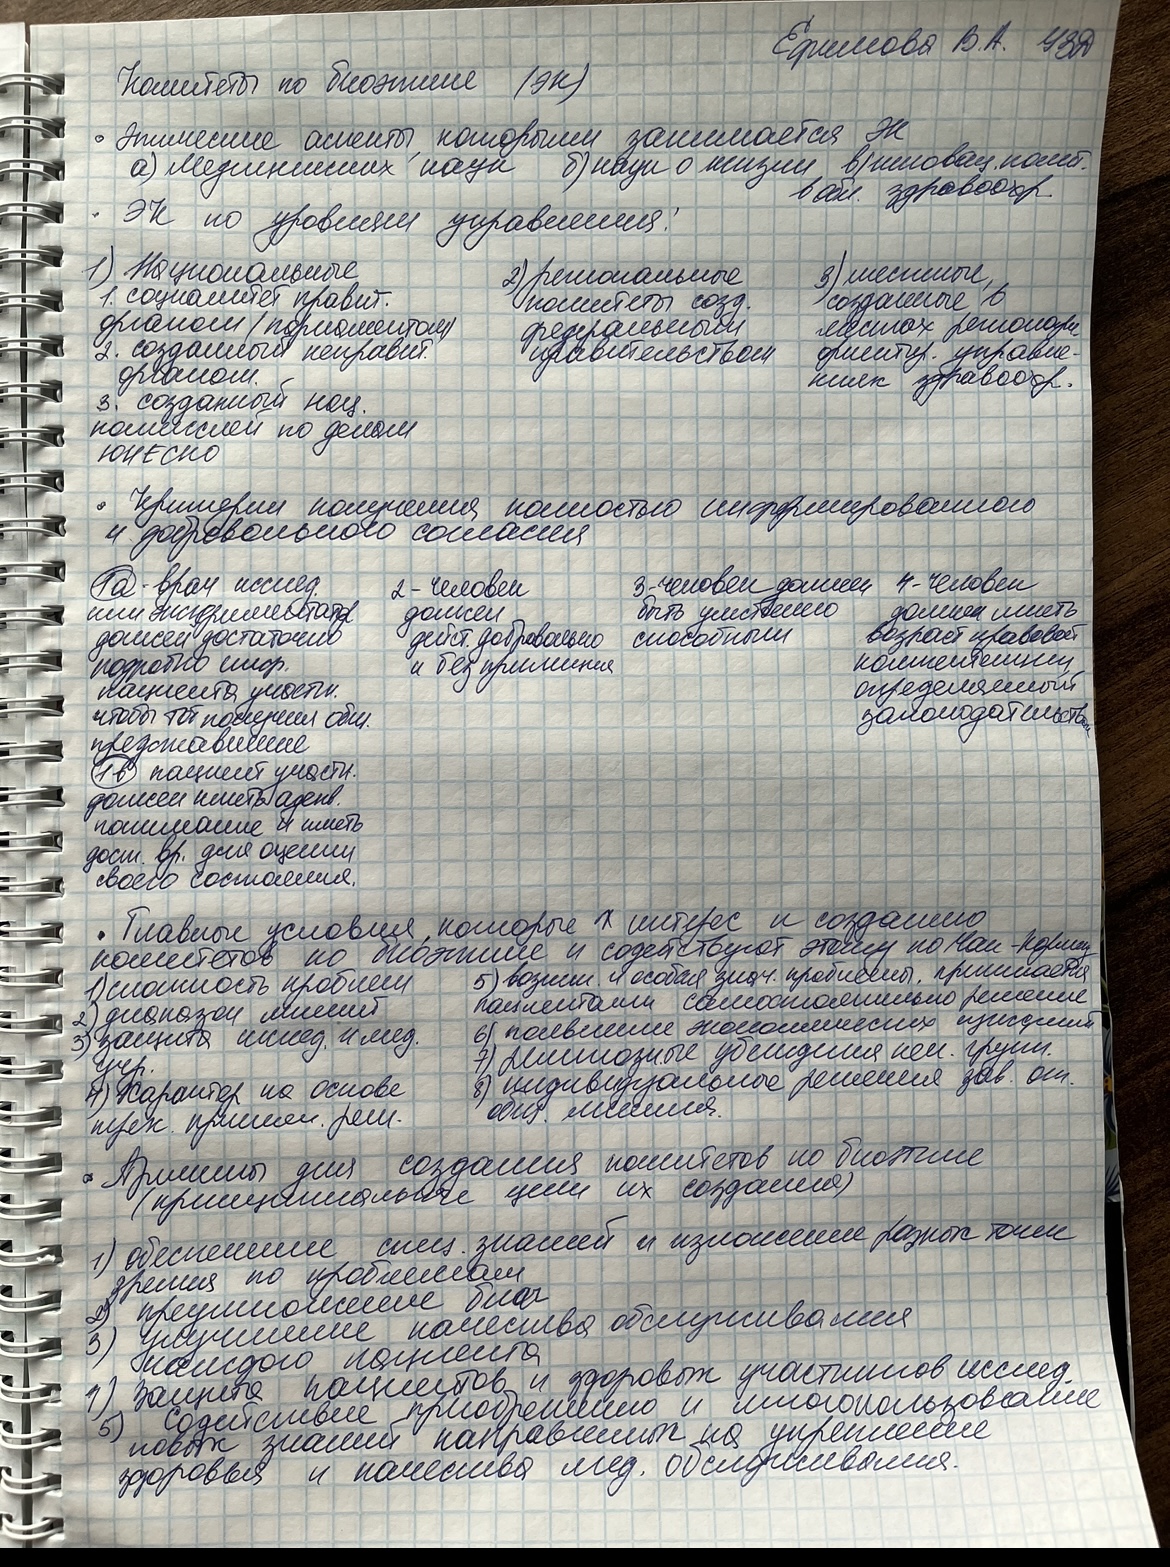 Ефимова В.А. 43Д
Комитеты по биоэтике (ЭК)
• Этические аспекты, которыми занимается ЭК
а) Медицинских наук б) наук о жизни в) иновац. полит.
в обл. здравоохр.
• ЭК по уровням управления:
1) Национальные
1. правит.
органом (парламентом)
2. созданный неправит.
органом.
3. созданный нац.
комиссией по делам
ЮНЕСКО
2) региональные
комитеты созд.
федеральным
правительством
3) местные,
созданные в
местах
управле-
здравоохр.
• Критерии получения полностью информированного
и добровольного согласия
1а - врач исслед.
или экспериментатор
должен достаточно
подробно инф.
пациента участн.
чтобы тот получил общ.
представление
1в пациент участн.
должен иметь адекв.
понимание и иметь
дост. вр. для оценки
своего состояния.
2 - человек
должен
дейст. добровольно
и без принижения
3 - человек должен
быть умственно
способным
4 - человек
должен иметь
возраст правовой
компетенции,
определяемый
законодательством
• Главные условия, которые ↑ интерес к созданию
комитетов по биоэтике и содействуют этому по Мак-Кормику
1) сложность проблем
2) диапазон мнений
3) защита исслед. и мед.
учр.
4) Характер на основе
приним. реш.
5) возник. и особая знач. проблемы, принимается
пациентами самостоятельно решение
6) появление экономических
7) религиозные убеждения нек. групп.
8) индивидуальные решения зав. от.
общ. мнения.
• Причины для создания комитетов по биоэтике
(принципиальные цели их создания)
1) обеспечение спец. знаний и изложение разных точек
зрения по проблемам
2) преумножение благ
3) улучшение качества обслуживания
каждого пациента
4) Защита пациентов и здоровых участников исслед.
5) Содействие приобретению и многопользование
новых знаний направленных на укрепление
здоровья и качества мед. обслуживания.